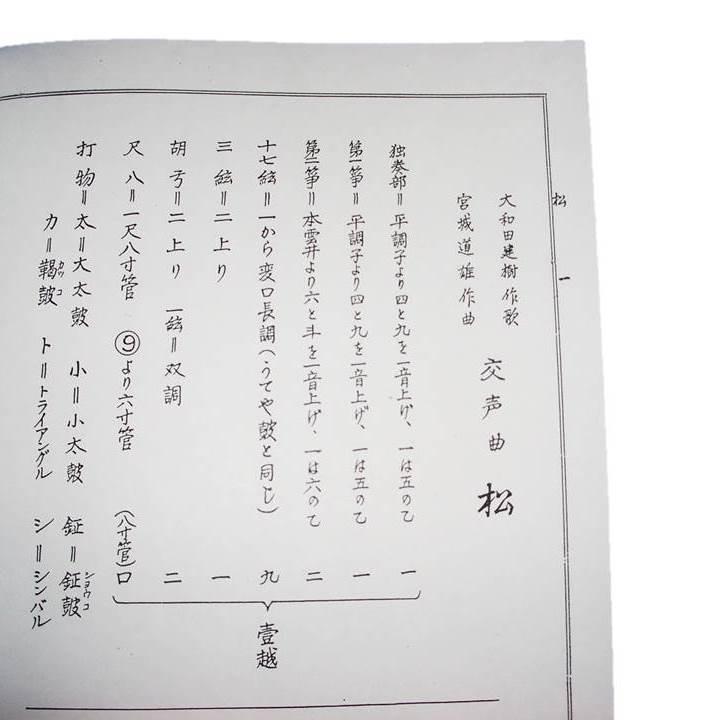 松 一
大和田建樹作歌
宮城道雄作曲
交声曲 松
独奏部=平調子より四と九を一音上げ、一は五の乙 一
第一箏=平調子より四と九を一音上げ、一は五の乙 一
第二箏=本雲井より六と斗を一音上げ、一は六の乙 二
十七絃=一から変ロ長調(うてや鼓と同じ) 九
三絃=二上り 一
胡弓=二上り 一絃=双調 二
尺八=一尺八寸管 ⑨より六寸管 (八寸管)ロ
壹越
打物=太=大太鼓 小=小太鼓 鉦=鉦鼓 ショウコ
カ=鞨鼓 カッコ ト=トライアングル シ=シンバル